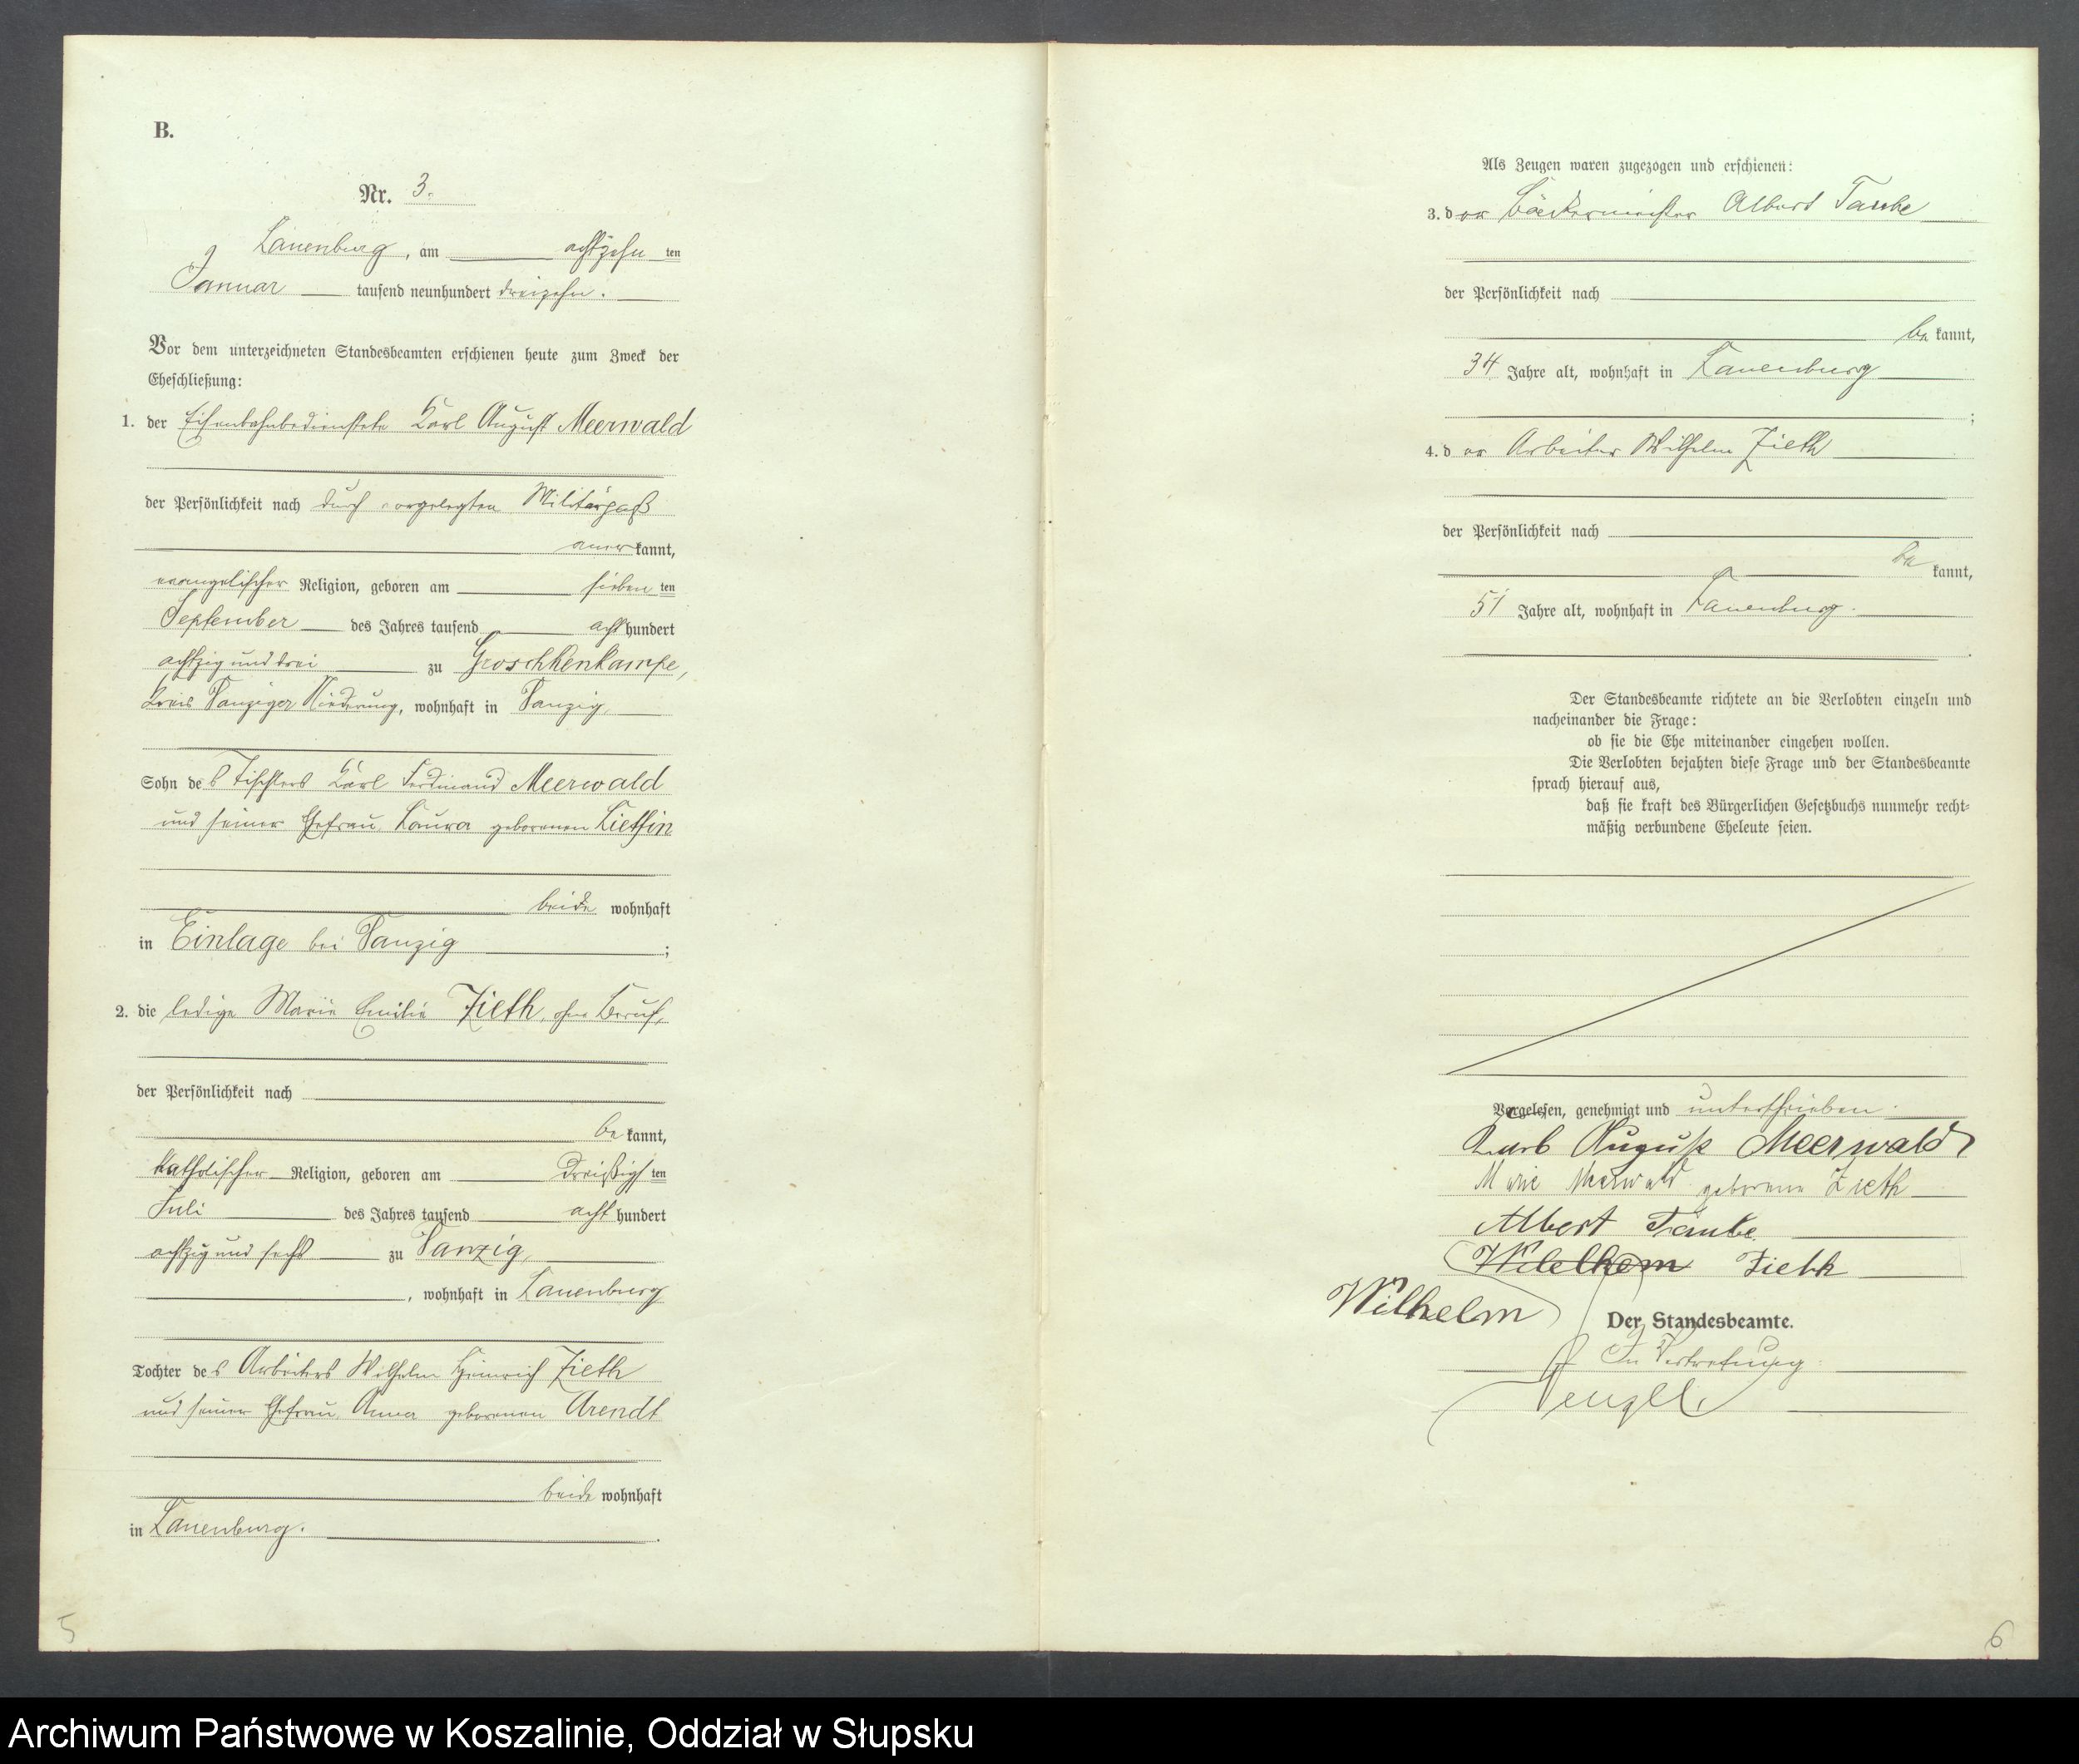 B.
Nr. 3.
Lauenburg, am achtzehn ten
Januar tausend neunhundert dreizehn.
Vor dem unterzeichneten Standesbeamten erschienen heute zum Zweck der
Eheschließung:
1. der Eisenbahnbedienstete Karl August Meerwald
der Persönlichkeit nach durch vorgelegten Militärpaß
anerkannt,
evangelischer Religion, geboren am sieben ten
September des Jahres tausend acht hundert
achtzig und drei zu Groschkenkampe,
Kreis Danziger Niederung, wohnhaft in Danzig
Sohn des Tischlers Karl Ferdinand Meerwald
und seiner Ehefrau Laura geborenen
beide wohnhaft
in Einlage bei Danzig ;
2. die ledige Marie Emilie Zieth, ohne Beruf,
der Persönlichkeit nach
be kannt,
katholischer Religion, geboren am dreißigs ten
Juli des Jahres tausend acht hundert
achtzig und sechs zu Danzig,
, wohnhaft in Lauenburg
Tochter des Arbeiters Wilhelm Heinrich Zieth
und seiner Ehefrau Anna geborenen Arendt
beide wohnhaft
in Lauenburg.
5
Als Zeugen waren zugezogen und erschienen:
3. der Bäckermeister Albert Taube
der Persönlichkeit nach
be kannt,
34 Jahre alt, wohnhaft in Lauenburg
;
4. der Arbeiter Wilhelm Zieth
der Persönlichkeit nach
be kannt,
51 Jahre alt, wohnhaft in Lauenburg.
Der Standesbeamte richtete an die Verlobten einzeln und
nacheinander die Frage:
ob sie die Ehe miteinander eingehen wollen.
Die Verlobten bejahten diese Frage und der Standesbeamte
sprach hierauf aus,
daß sie kraft des Bürgerlichen Gesetzbuchs nunmehr recht-
mäßig verbundene Eheleute seien.
Vorgelesen, genehmigt und unterschrieben.
Karl August Meerwald
Marie Meerwald geborene Zieth
Albert Taube
Zieth
Wilhelm
Der Standesbeamte.
In Vertretung:
6
Archiwum Państwowe w Koszalinie, Oddział w Słupsku